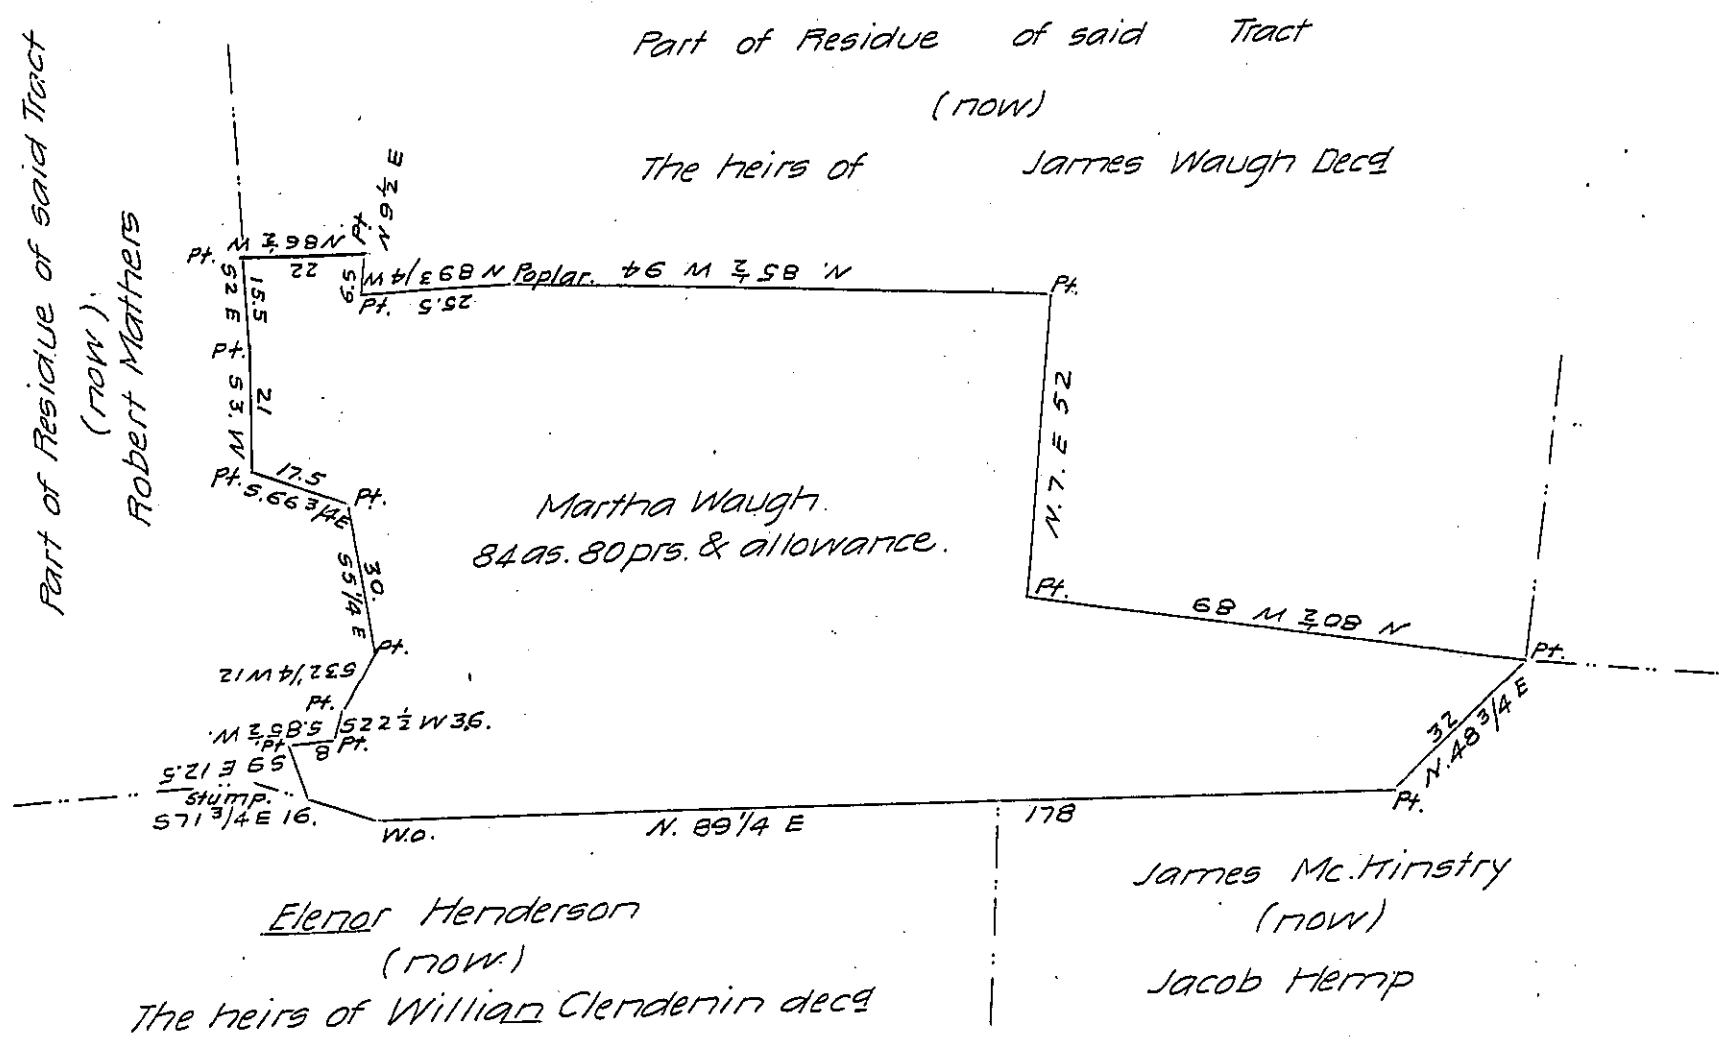 Part of Residue of said Tract
(now)
The heirs of James Waugh Decd
Part of Residue of said Tract
(now).
Robert Mathers
N 86 1/2 W
22
Pt.
Pt.
N 6 1/2 E
5.9
N 89 3/4 W
25.5
Pt.
Poplar.
N. 85 1/2 W 94
Pt.
S2 E
15.5
Pt.
S3. W
21
Pt.
17.5
S.66 3/4 E
Pt.
S5 1/4 E
30.
Pt.
S32 1/4 W 12
Pt.
S22 1/2 W 3.6.
Pt.
S.85 1/2 W.
8
Pt.
S9 E 12.5
Stump.
S71 3/4 E 16.
W.O.
N. 89 1/4 E
178
Pt.
32
N. 48 3/4 E
Pt.
N 80 1/2 W 89
Pt.
N. 7. E 52
Martha Waugh.
84 as. 80 prs. & allowance.
Elenor Henderson
(now)
The heirs of Willian Clendenin decd
James Mc.Kinstry
(now)
Jacob Hemp